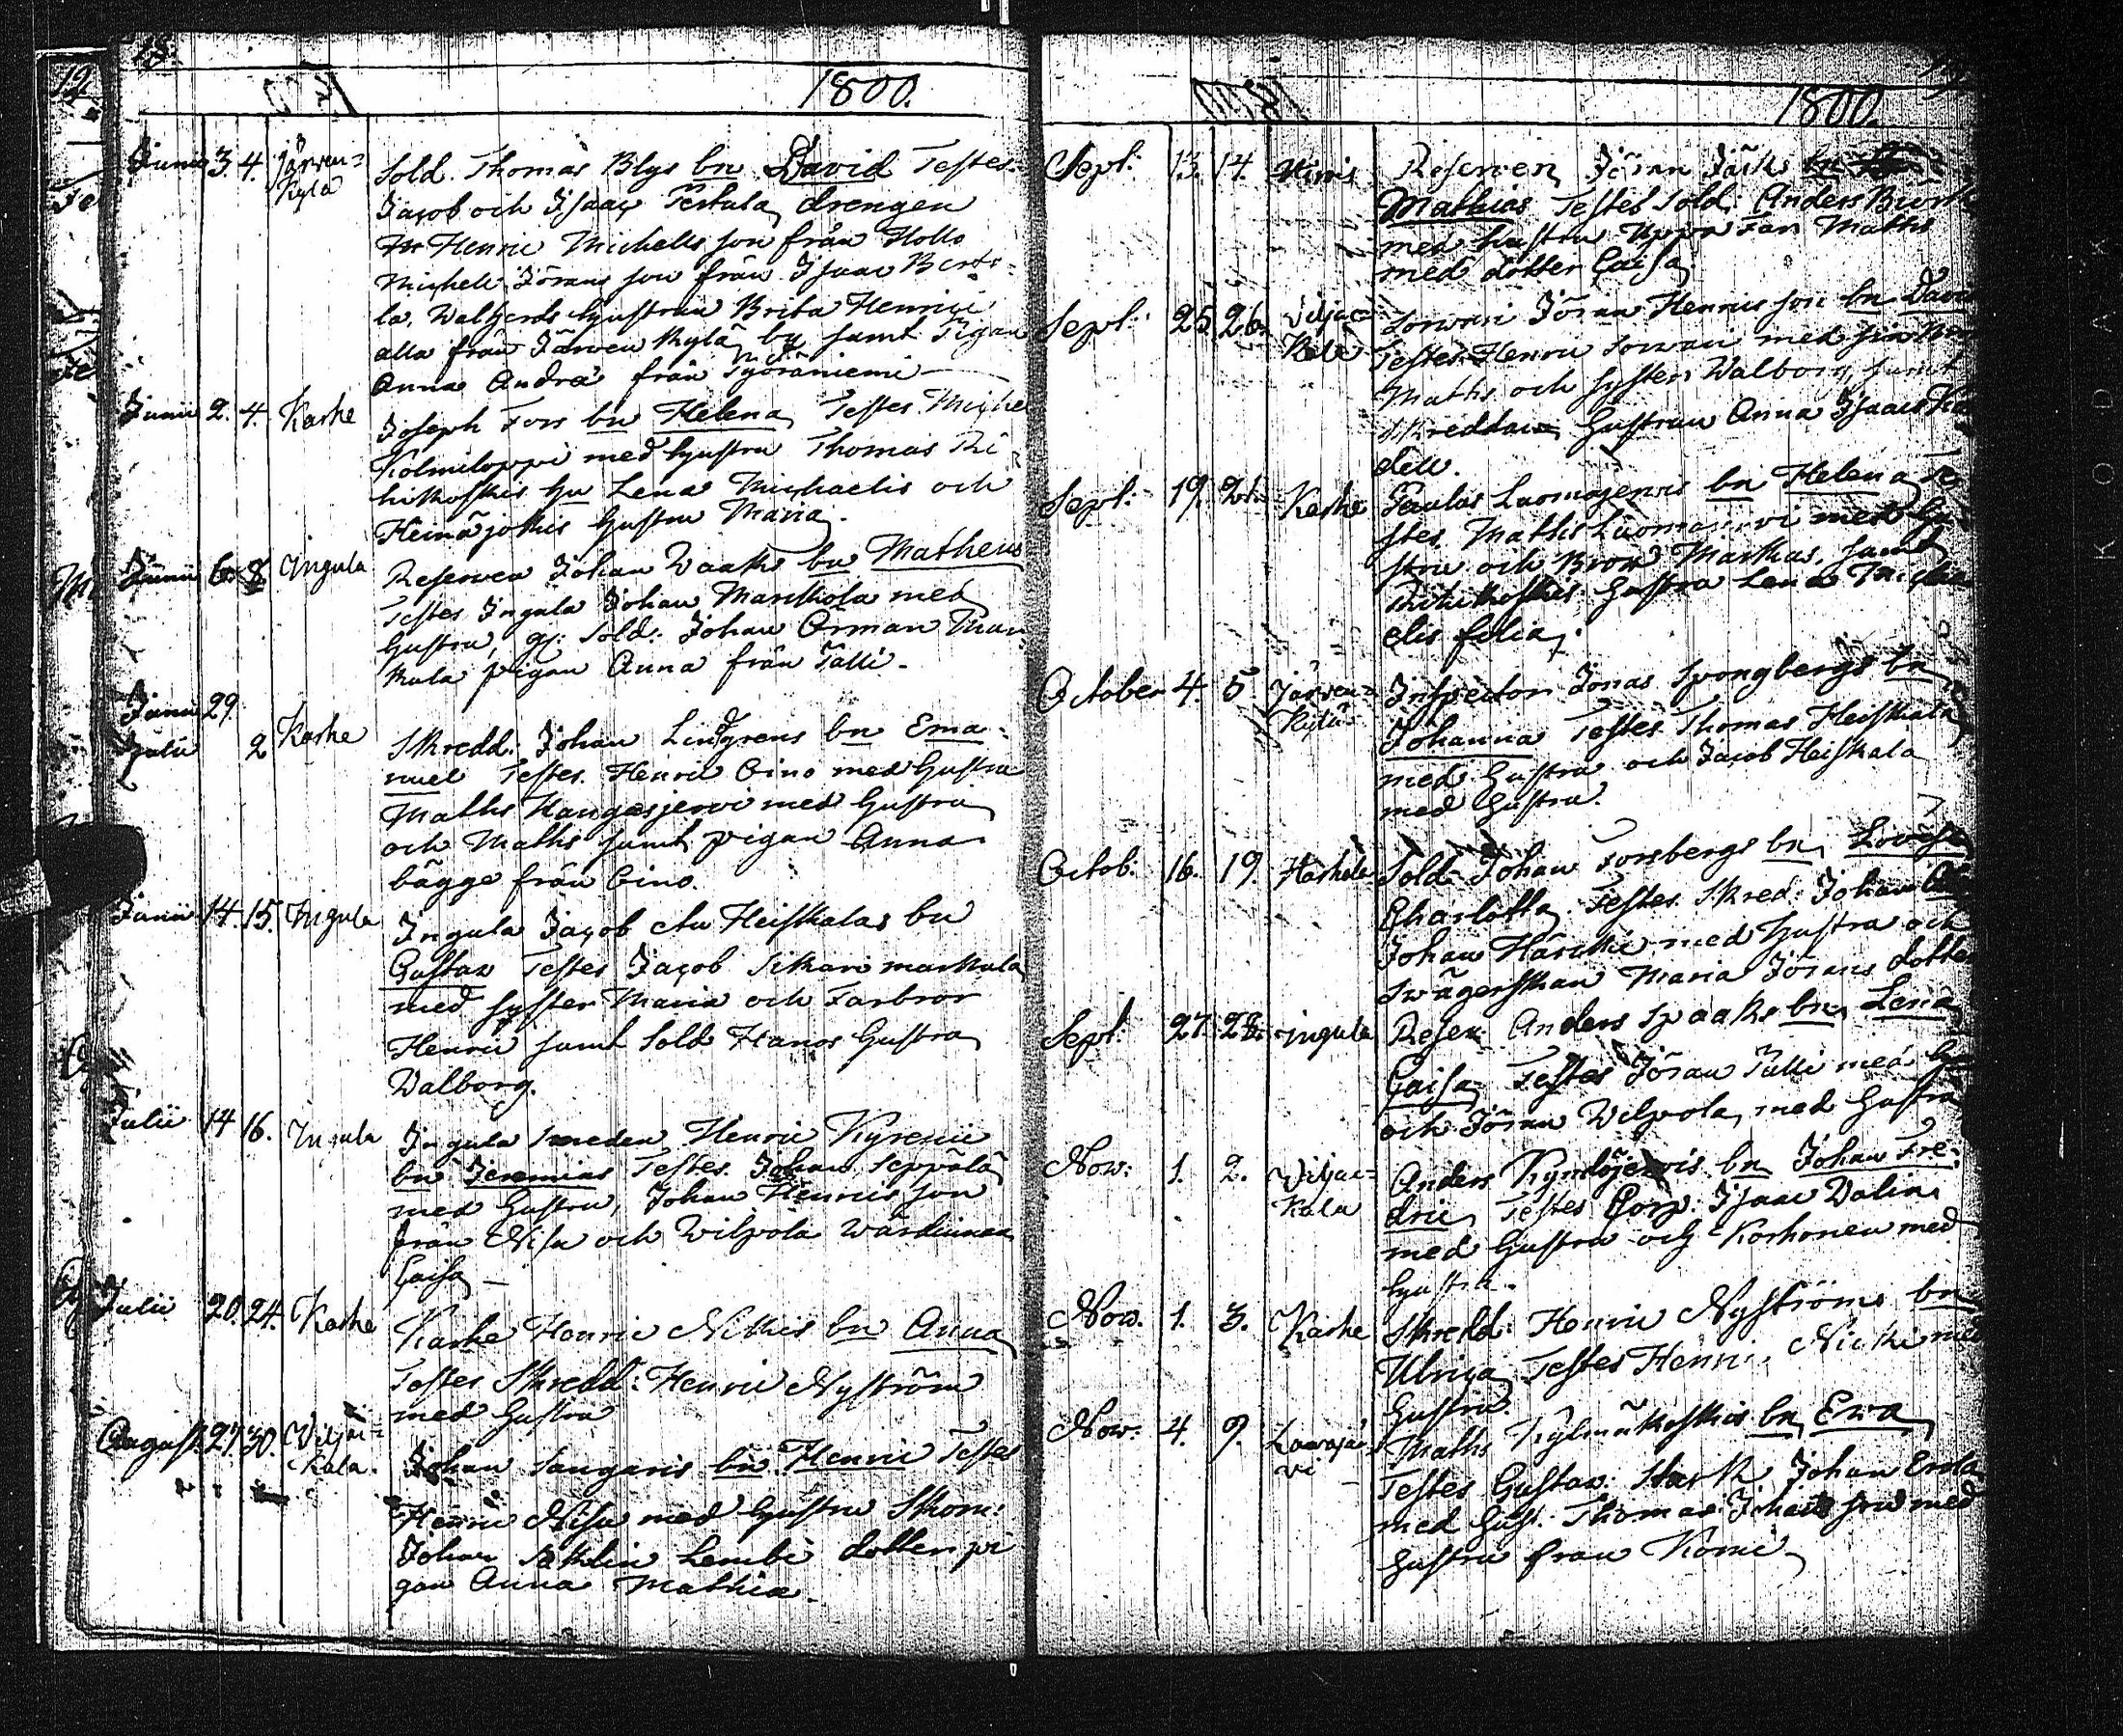 18.
1800.
Junii 3. 4. Järven=
Kylä
Sold. Thomas Blys bn David Testes.
Jacob och Isaac Pertula, drengen
Henric Michels son från Hollo
Michel Jörans son från Isaac Berto=
la, Walfrids hustrun Brita Henrici
alla från Järven Kylä by samt Pigan
Anna Andræ från Työräniemi
Junii 2. 4. Karhe Joseph Fors bn Helena Testes Michel
Kolmiloppi med hustru Thomas Ri
hikoskis hu Lena Michaelis och
Heinäjokis hustru Maria.
Junii 6. 8. Ingula Reserven Johan Waaks bn Matheus
Testes Ingula Johan Markkola med
hustru, gl: Sold: Johan Orman Mar
kula pigan Anna från Talli
Junii 29.
Julii 2 Karhe Skredd: Johan Lindgrens bn Ema=
nuel Testes Henric Oino med hustru
Maths Kangasjervi med hustru
och Maths samt pigan Anna
bägge från Oino.
Junii 14. 15. Ingula Ingula Jacob Au Heiskalas bn
Gustav Testes Jacob Sikari markula
med syster Maria och Farbror
Henric samt Sold Hanos hustru
Walborg.
Julii 14 16. Ingula Ingula smeden Henric Kyrenii
bn Jeremias Testes Johan Seppälä
med hustru, Johan Henrics son
från Nisu och Wilpola wärdinnan
Caisa
Julii 20. 24. Karhe Karhe Henric Nikkis bn Anna
Testes Skredd: Henric Nyström
med hustru
August. 27. 30. Viljac=
kala.
Johan Saugaris bn Henric Testes
Henric Nisu med hustru Skom:
Johan Lembi dotter pi
gan Anna Mathiæ
1800.
Sept: 13. 14. Reserven Jöran Jäsk bn
Mathias Testes Sold: Anders Biork
med hustru Uppa Fan Maths
med dotter Caisa
Sept: 25. 26. Viljac=
Kala
Sorvari Jöran Henrics son bn David
Testes Henric Sorvari med sin Bror
Maths och syster Walborg samt
skreddare hustrun Anna Isaacs
dell.
Sept: 19. 21. Karhe Paulus Luomajervis bn Helena Te
stes Maths Luomajervi med hu
stru och Bror Markus, samt
Rihikoskis hustru Lena Micha
elis filia.
October 4. 5. Järven=
Kylä
Inspector Jonas Spongbergs bn
Johanna Testes Thomas Heiskala
med hustru och Jacob Heiskala
med hustru.
Octob: 16. 19. Harhala Sold Johan Forsbergs bn Lovisa
Charlotta. Testes Skred: Johan
Johan Härkki med hustru och
Swägerskan Maria Jörans dotter
Sept: 27. 28. Ingula Reser: Anders Spaaks bn Lena
Caisa Testes Jöran Tulli med hu
och Jöran Wilpola, med hustru
Nov: 1. 2. Viljac=
kala
Anders Kyndöjervis bn Johan Fre=
dric Testes Corp: Isaac Walin
med hustru och Korhonen med
hustru.
Nov. 1. 3. Karhe Skredd: Henric Nyströms bn
Ulrica Testes Henric Nicki med
hustru.
Nov: 4. 9. Lavajär
vi
Maths Kylmäkoskis bn Eva
Testes Gustav: Stark Johan Erola
med hust: Thomas Johans son med
hustru från Komi
KODAK